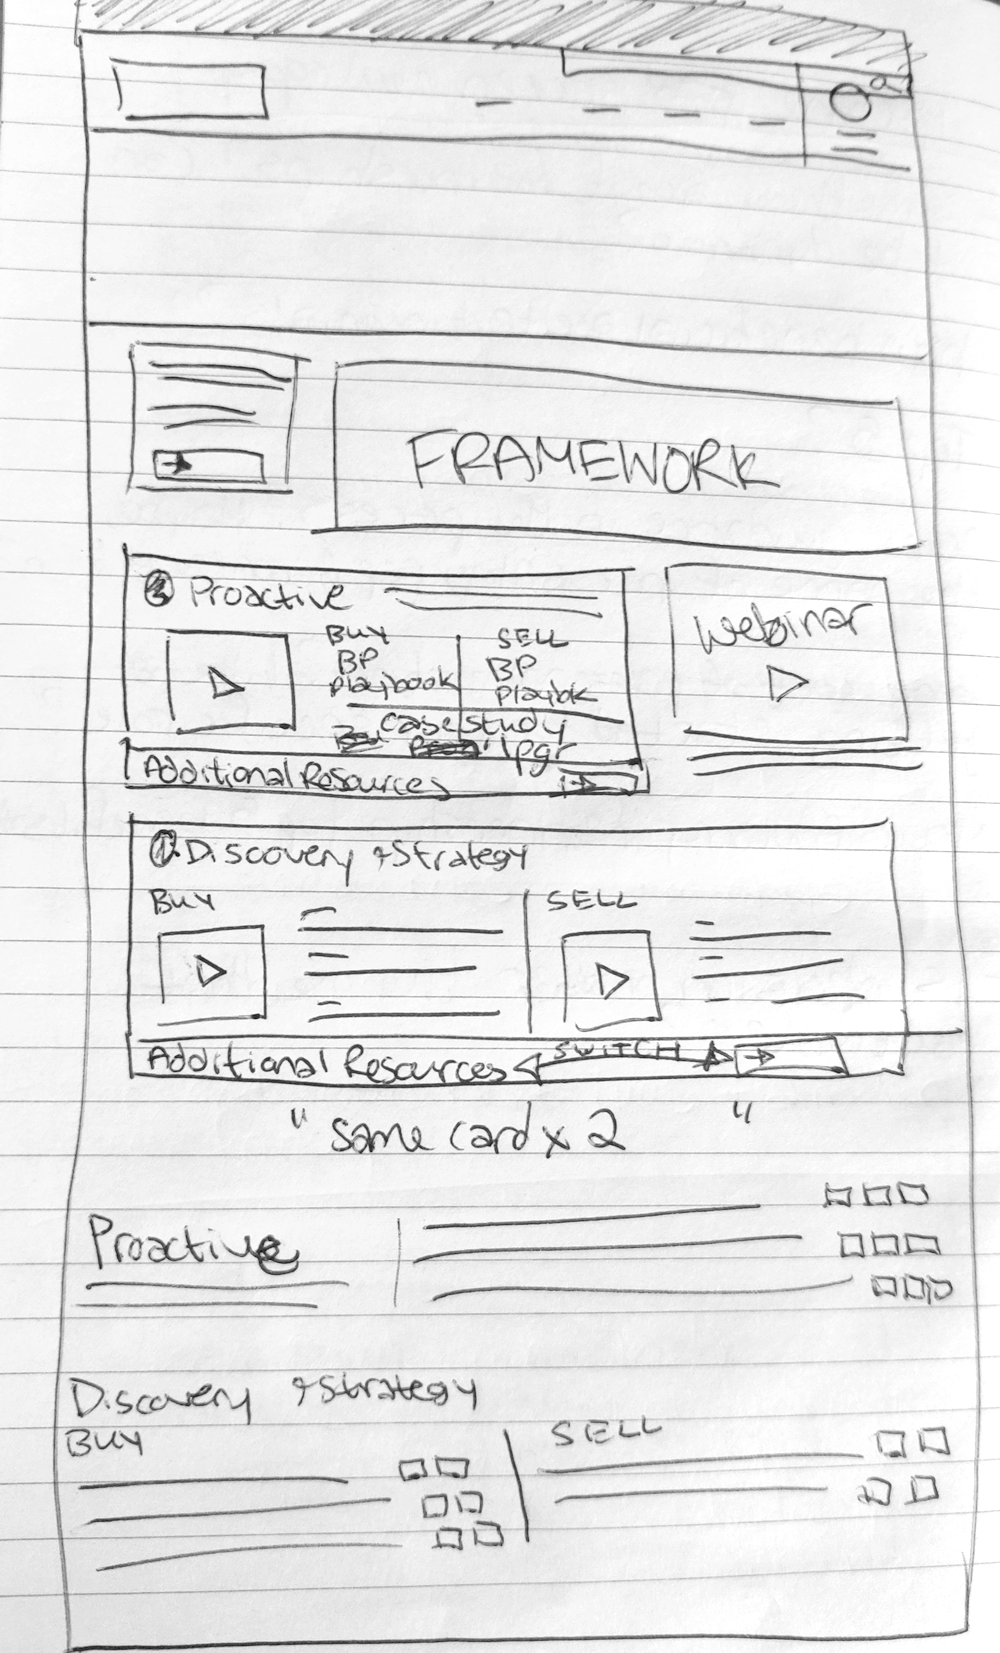 FRAMEWORK
Proactive
BUY
BP
playbook
SELL
BP
playbk
case study
1pgr
Additional Resources
webinar
1. Discovery + Strategy
BUY
SELL
Additional Resources
SWITCH
" same card x 2 "
Proactive
Discovery + Strategy
BUY
SELL